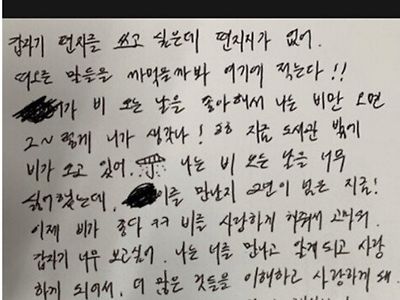 갑자기 편지를 쓰고 싶은데 편지지가 없어.
떠오른 말들을 까먹을까봐 여기에 적는다!!
가 비 오는 날을 좋아해서 나는 비만 오면
그~렇게 니가 생각나! 호호 지금 도서관 밖에
비가 오고 있어. 나는 비 오는 날을 너무
싫어했는데, 이를 만난지 2년이 넘은 지금!
이제 비가 좋다 ㅋㅋ 비를 사랑하게 해줘서 고마워.
갑자기 너무 보고싶어. 나는 너를 만나고 알게 되고 사랑
하게 되어서, 더 많은 것들을 이해하고 사랑하게 돼.